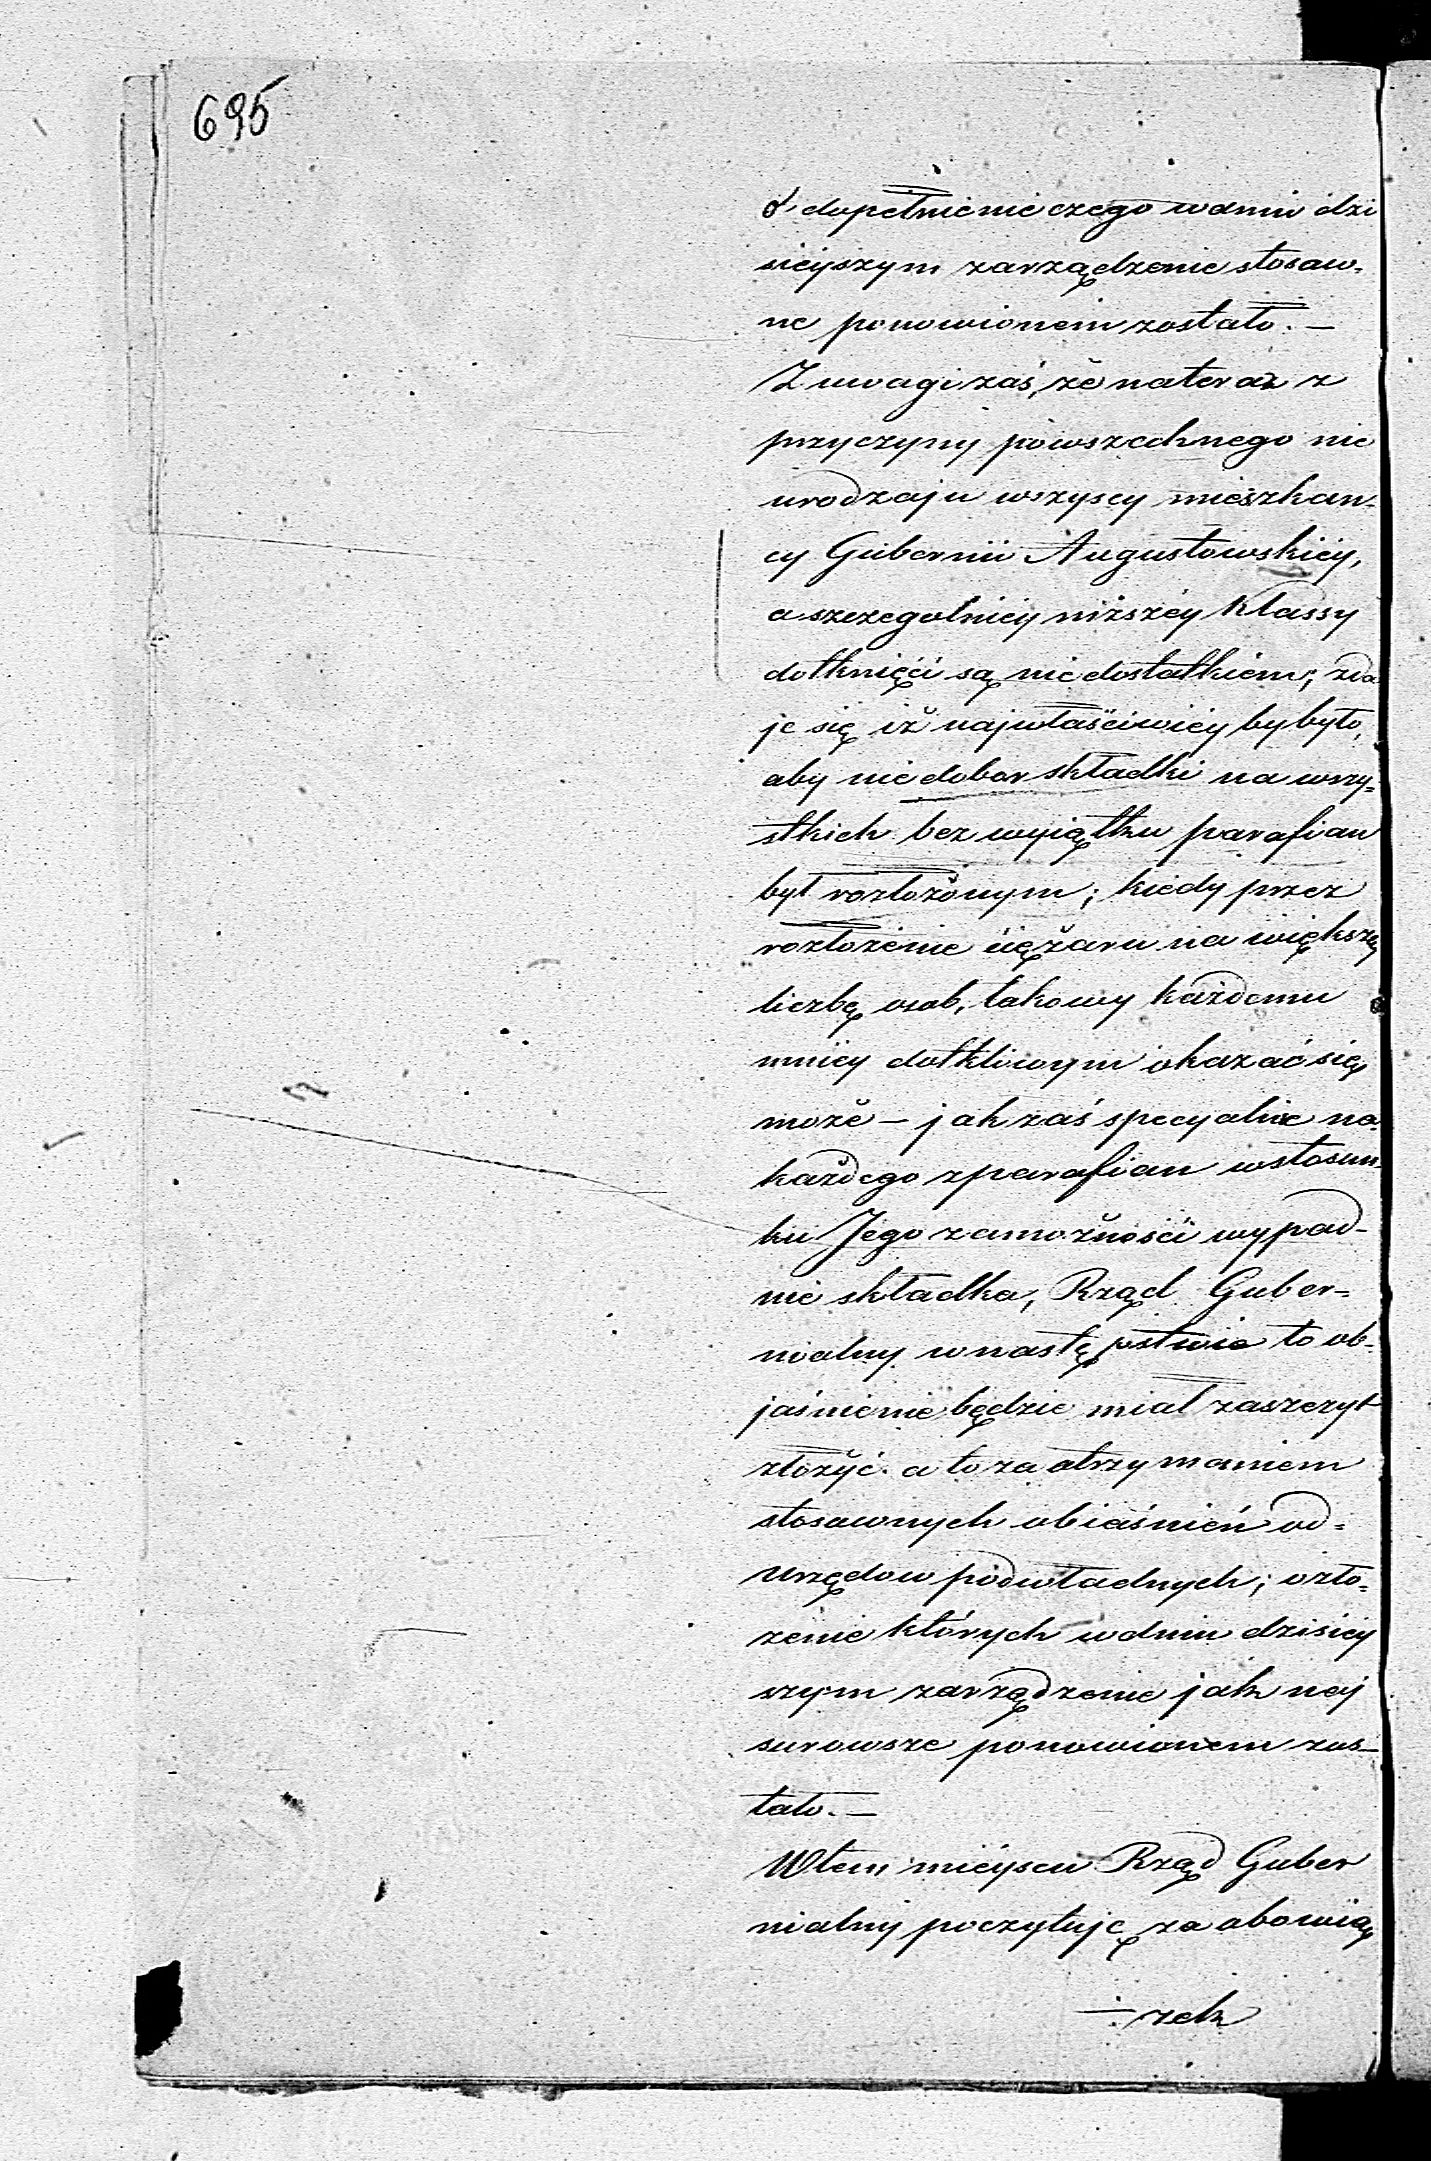 695
o dopełnienie czego w dniu dzi
sieyszym zarządzenie stosow=
ne ponowionem zostało. —
Z uwagi zaś, że na teraz z
przyczyny powszechnego nie
urodzaju wszyscy mieszkań=
cy Gubernii Augustowskiéy,
a szczegolniéy niższéy Klassy
dotknięci są niedostatkiem; zda
je się iż najwłaściwiéy by było,
aby niedobor składki na wszy=
stkich bez wyiątku parafian
był rozłożonym; kiedy przez
rozłożenie ciężaru na większą
liczbę osob, takowy każdemu
mniéy dotkliwym okazać się
może — jak zaś specyalnie na
każdego z parafian w stosun=
ku Jego zamożności wypad=
nie składka, Rząd Guber=
nialny w następstwie to ob=
jaśnienie będzie miał zaszczyt
złożyć. a to za otrzymaniem
stosownych obiaśnień od=
Urzędow podwładnych; o zło=
żenie których w dniu dzisiéy
szym zarządzenie jak naj
surowsze ponowionem zos=
tało. —
W tem mieyscu Rząd Guber
nialny poczytuję za obowią
÷ zek